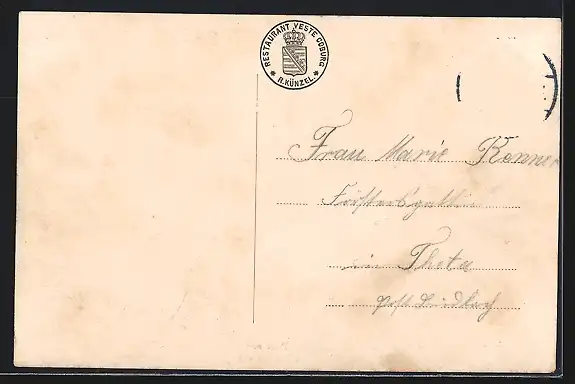 RESTAURANT VESTE COBURG
* R. KÜNZEL. *
Frau Marie Renner
Förstersgattin
in Theta
Post